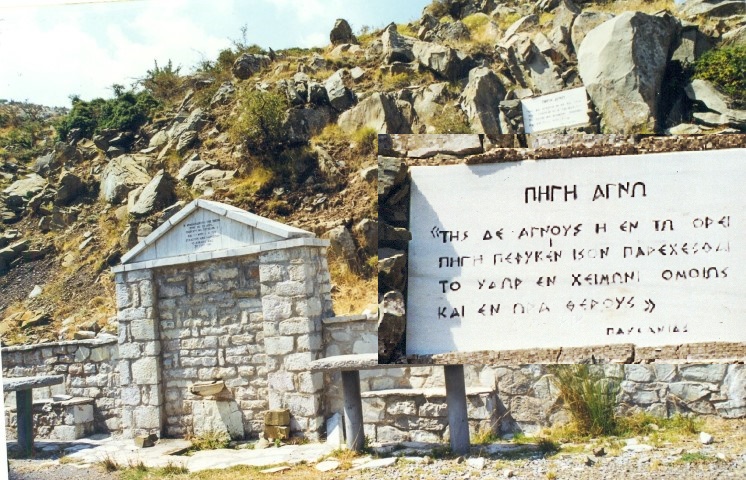 ΠΗΓΗ ΑΓΝΩ
«ΤΗΣ ΔΕ ΑΓΝΟΥΣ Η ΕΝ ΤΩ ΟΡΕΙ
ΠΗΓΗ ΠΕΦΥΚΕΝ ΙΣΟΝ ΠΑΡΕΧΕΣΘΑΙ
ΤΟ ΥΔΩΡ ΕΝ ΧΕΙΜΩΝΙ ΟΜΟΙΩΣ
ΚΑΙ ΕΝ ΩΡΑ ΘΕΡΟΥΣ»
ΠΑΥΣΑΝΙΑΣ